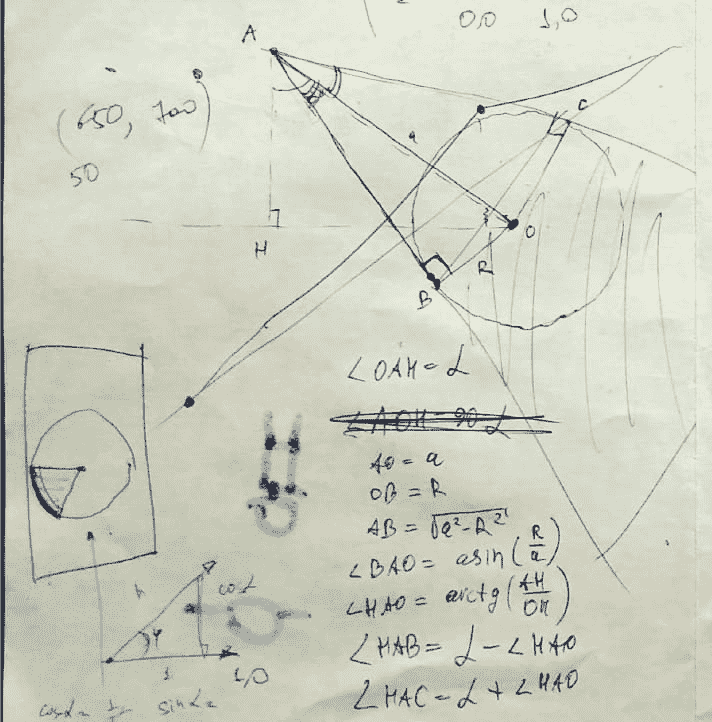 0,0 1,0
A
(650, 700)
50
a
C
H
O
R
B
∠OAH = α
∠AOH = 90 α
AO = a
OB = R
AB = √a²-R²
∠BAO = asin(R/a)
∠HAO = arctg(AH/OH)
∠HAB = α - ∠HAO
∠HAC = α + ∠HAO
h
cosα
φ
1
1,0
cosα = sinα =